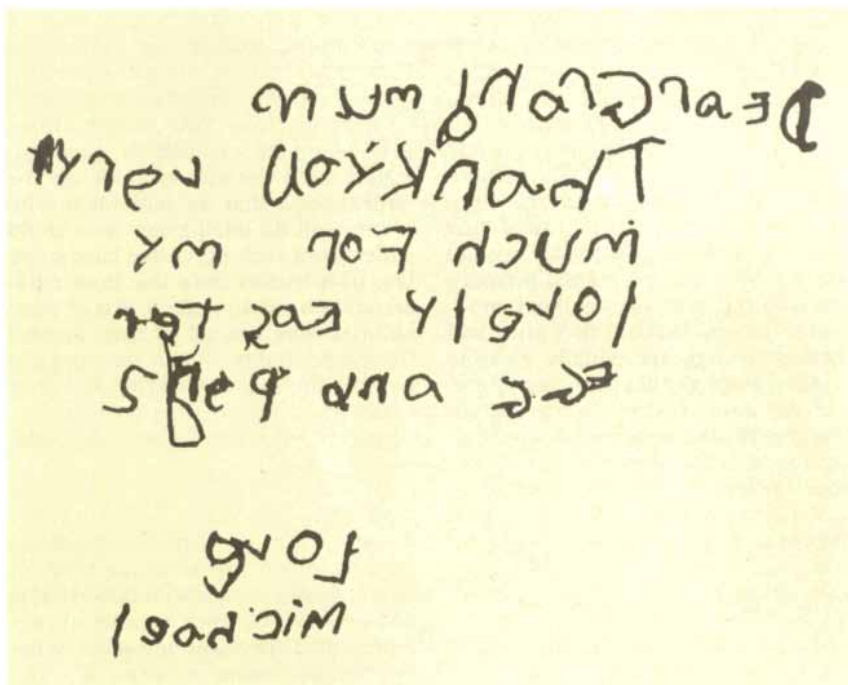 Dear Grandmum
Thank YoU very
mUch For my
lovely easter
egg and
love
Michael